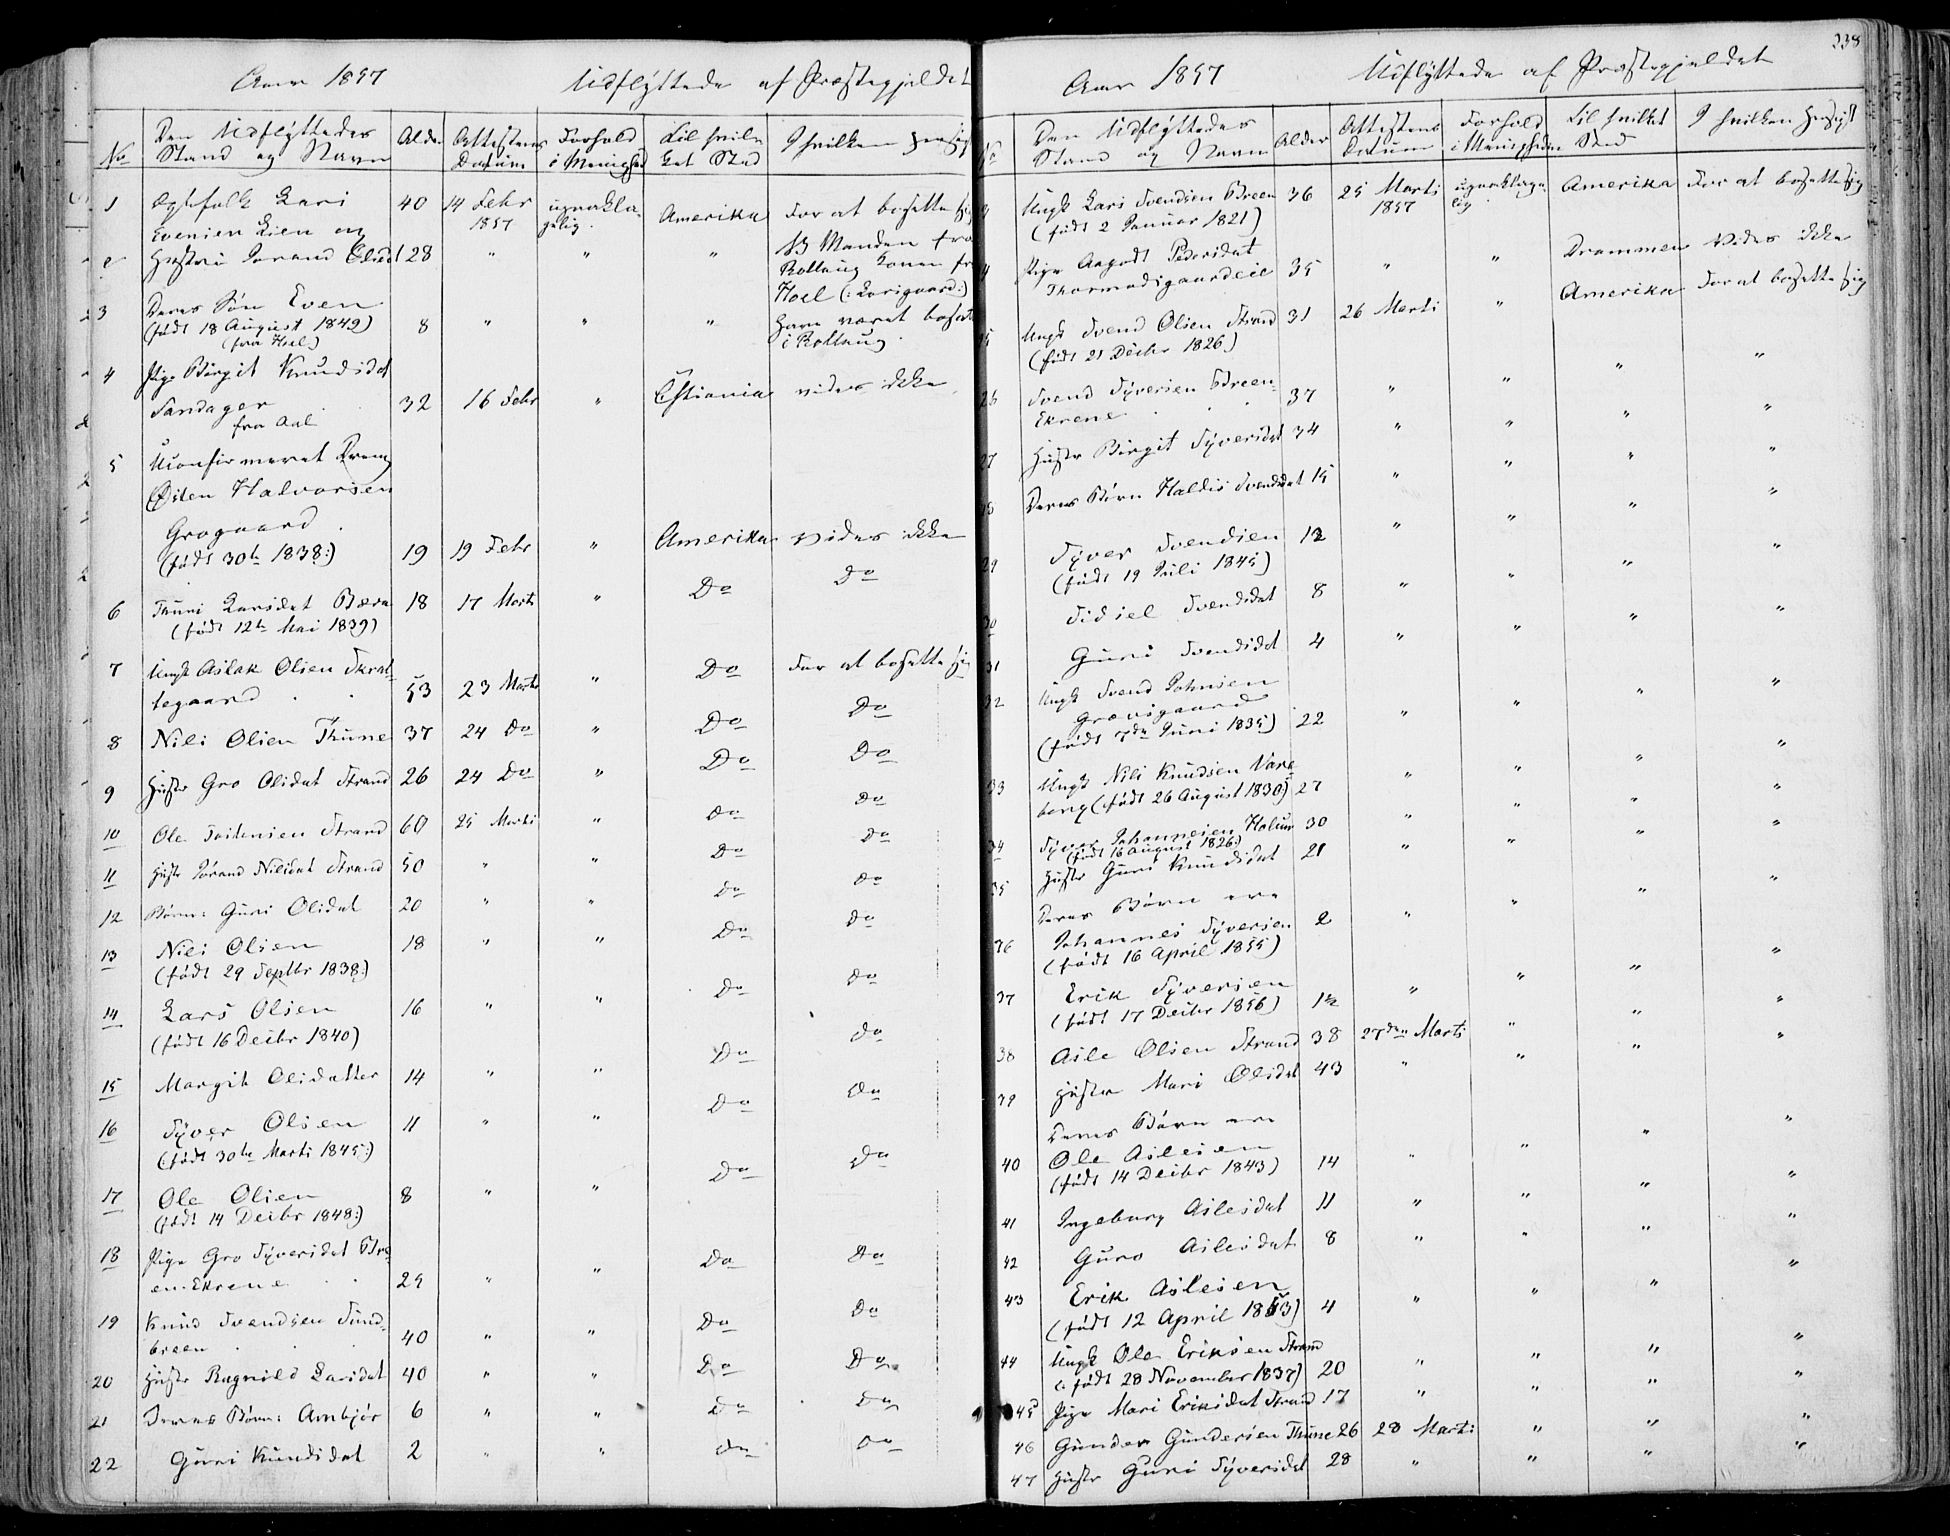 Aar 1857 Udflyttede af Præstegjeldet
No Den Udflyttedes Stand og Navn Alder Attestens Datum Forhold i Menighed Til hvilket Sted I hvilken Hensigt
1 Ægtefolk Lars Evensen Lien og 40 14 Febr 1857 upaaklagelig. Amerika For at bosette sig
2 Hustru Jørand Olsdt 28 " " " NB Manden fra Rollaug Konen fra Hoel (: Larsgaard:)
3 Deres Søn Even 8 " " " Have været bosatte i Rollaug.
(født 18 August 1849)
(fra Hoel)
4 Pige Birgit Knudsdt
Sandager 32 16 Febr " Christiania vides ikke
fra Aal
5 Uconfirmeret Dreng
Østen Halvorsen
Grøgaard.
(født 30te 1838:) 19 19 Febr " Amerika vides ikke
6 Thuri Larsdat Bæra 18 17 Marts " Do Do
(født 12te Mai 1839)
7 Ungk Aslak Olsen Skrattegaard 53 23 Marts " Do For at bosette sig
8 Nils Olsen Thune 37 24 Do " Do Do
9 Hustr Gro Olsdat Strand 26 24 Do " Do Do
10 Ole Torstensen Strand 60 25 Marts " Do Do
11 Hustr Jørand Nilsdat Strand 50 " " Do Do
12 Børn: Guri Olsdat 20 " " Do Do
13 Nils Olsen 18 " " Do Do
(født 29 Septbr 1838:)
14 Lars Olsen 16 " " Do Do
(født 16 Decbr 1840)
15 Margit Olsdatter 14 " " Do Do
16 Syver Olsen 11 " " Do Do
(født 30te Marts 1845:)
17 Ole Olsen 8 " " Do Do
(født 14 Decbr 1848:)
18 Pige Gro Syversdat Breen-Ekrene 25 " " Do Do
19 Knud Svendsen Sundbreen 40 " " Do Do
20 Hustr Ragnild Larsdat 40 " " Do Do
21 Deres Børn: Ambjør 6 " " Do Do
22 Guri Knudsdat 2 " " Do Do
238
Aar 1857 Udflyttede af Præstegjeldet
No Den Udflyttedes Stand og Navn Alder Attestens Datum Forhold i Menigheden Til hvilket Sted I hvilken Hensigt
3 Ungk Lars Svendsen Breen 36 25 Marts 1857 upaaklagelig. Amerika For at bosette sig
(født 2 Januar 1821)
4 Pige Aagodt Pedersdat
Thormodsgaardeie 35 " " Drammen Vides ikke
25 Ungk Svend Olsen Strand 31 26 Marts " Amerika For at bosette sig
(født 21 Decbr 1826)
26 Svend Syversen Breen-Ekrene 37 " " " "
27 Hustr Birgit Syversdat 34 " " " "
28 Deres Børn Haldis Svendsdat 15 " " " "
29 Syver Svendsen 12 " " " "
(født 19 Juli 1845)
30 Sidsel Svendsdat 8 " " " "
31 Guri Svendsdat 4 " " " "
32 Ungk Svend Johnsen
Grøvsgaard
(født 7de Juni 1835) 22 " " " "
33 Ungk Nils Knudsen Vareberg (født 26 August 1830) 27 " " " "
34 Syver Johannesen Holum 30 " " " "
(født 16 August 1826:)
35 Hustr Guri Knudsdat 21 " " " "
Deres Børn ere
36 Johannes Syversen 2 " " " "
(født 16 April 1855)
37 Erik Syversen
(født 17 Decbr 1856) 1/2 " " " "
38 Asle Olsen Strand 38 27den Marts " " "
39 Hustr Mari Olsdat 43 " " " "
Deres Børn ere
40 Ole Aslesen
(født 14 Decbr 1843) 14 " " " "
41 Ingeborg Aslesdat 11 " " " "
42 Guro Aslesdat 8 " " " "
43 Erik Aslesen
(født 12 April 1853) 4 " " " "
44 Ungk Ole Eriksen Strand
(: født 28 November 1837) 20 " " " "
45 Pige Mari Eriksdat Strand 17 " " " "
46 Gunder Gundersen Thune 26 28 Marts " " "
47 Hustr Guri Syversdat 28 " " " "